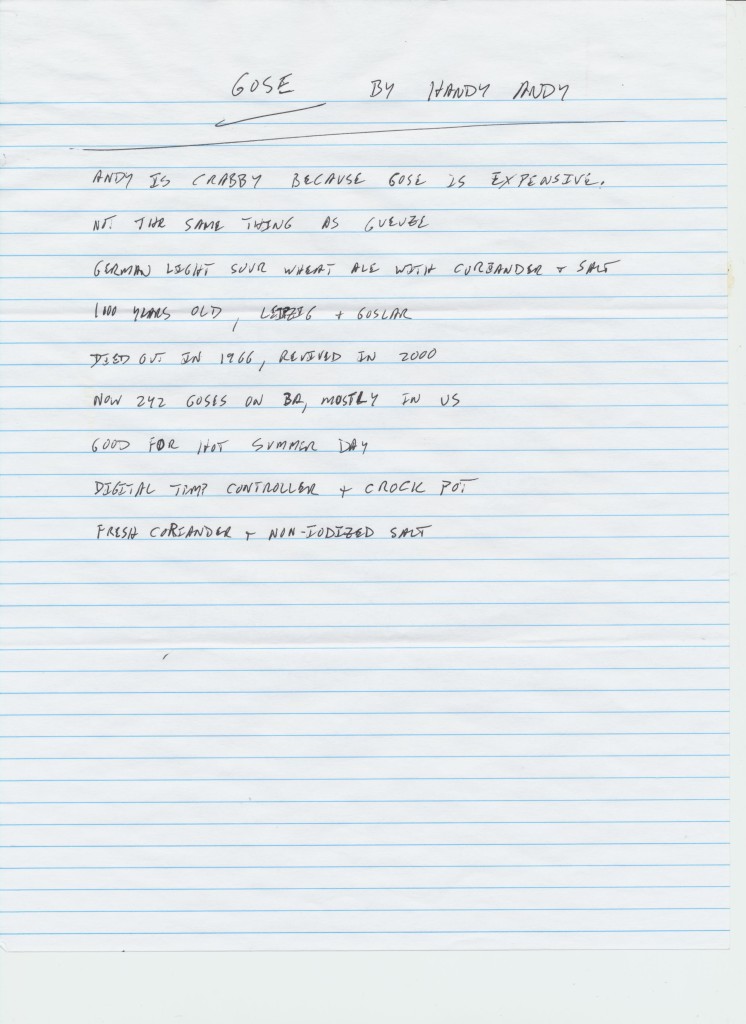 GOSE BY HANDY ANDY
ANDY IS CRABBY BECAUSE GOSE IS EXPENSIVE.
NOT THE SAME THING AS GUEUZE
GERMAN LIGHT SOUR WHEAT ALE WITH CORIANDER + SALT
1000 YEARS OLD, LEIPZIG + GOSLAR
DIED OUT IN 1966, REVIVED IN 2000
NOW 242 GOSES ON BA, MOSTLY IN US
GOOD FOR HOT SUMMER DAY
DIGITAL TEMP CONTROLLER + CROCK POT
FRESH CORIANDER + NON-IODIZED SALT